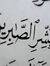 بَشِّرِ الصَّٰبِرِينَ